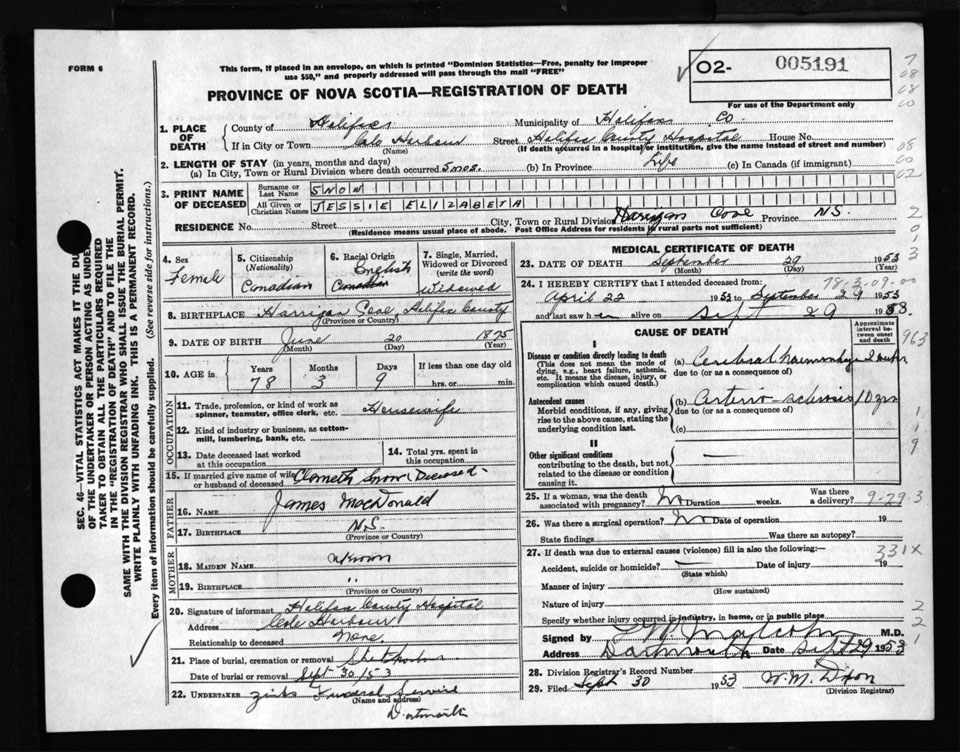 FORM 6
This form, if placed in an envelope, on which is printed "Dominion Statistics—Free, penalty for improper
use $50," and properly addressed will pass through the mail "FREE"
PROVINCE OF NOVA SCOTIA—REGISTRATION OF DEATH
O2- 005191
For use of the Department only
1. PLACE OF DEATH
County of Halifax Municipality of Halifax Co
If in City or Town Cole Harbour (Name) Street Halifax County Hospital House No.
(If death occurred in a hospital or institution, give the name instead of street and number)
2. LENGTH OF STAY (in years, months and days)
(a) In City, Town or Rural Division where death occurred 5 mos. (b) In Province Life (c) In Canada (if immigrant)
3. PRINT NAME OF DECEASED
Surname or Last Name SNOW
All Given or Christian Names JESSIE ELIZABETA
RESIDENCE No. Street City, Town or Rural Division Harrigan Cove Province N.S.
(Residence means usual place of abode. Post Office Address for residents in rural parts not sufficient)
4. Sex Female
5. Citizenship (Nationality) Canadian
6. Racial Origin English Canadian
7. Single, Married, Widowed or Divorced (write the word) Widowed
8. BIRTHPLACE Harrigan Cove, Halifax County
(Province or Country)
9. DATE OF BIRTH June 20 1875
(Month) (Day) (Year)
10. AGE in Years 78 Months 3 Days 9 If less than one day old hrs. or min.
OCCUPATION
11. Trade, profession, or kind of work as spinner, teamster, office clerk, etc. Housewife
12. Kind of industry or business, as cotton-mill, lumbering, bank, etc.
13. Date deceased last worked at this occupation
14. Total yrs. spent in this occupation
15. If married give name of wife or husband of deceased Snow Deceased
FATHER
16. NAME James MacDonald
17. BIRTHPLACE N.S.
(Province or Country)
MOTHER
18. MAIDEN NAME
19. BIRTHPLACE "
(Province or Country)
20. Signature of informant Halifax County Hospital
Address Cole Harbour
Relationship to deceased None
21. Place of burial, cremation or removal
Date of burial or removal Sept 30/53
22. UNDERTAKER Zinks Funeral Service
(Name and address)
Dartmouth
MEDICAL CERTIFICATE OF DEATH
23. DATE OF DEATH September 29 1953
(Month) (Day) (Year)
24. I HEREBY CERTIFY that I attended deceased from: 78-3-09-00
April 22 1953 to September 29 1953
and last saw h alive on Sept 29 1953.
CAUSE OF DEATH
Approximate interval between onset and death
I
Disease or condition directly leading to death
(This does not mean the mode of dying, e.g., heart failure, asthenia, etc. It means the disease, injury, or complication which caused death.)
(a) Cerebral haemorrhage
due to (or as a consequence of)
Antecedent causes
Morbid conditions, if any, giving rise to the above cause, stating the underlying condition last.
(b) Arterio-sclerosis 10 yrs
due to (or as a consequence of)
(c)
II
Other significant conditions
contributing to the death, but not related to the disease or condition causing it.
25. If a woman, was the death associated with pregnancy? No Duration weeks. Was there a delivery? 9-29-3
26. Was there a surgical operation? No Date of operation 19
State findings Was there an autopsy?
27. If death was due to external causes (violence) fill in also the following:— 331X
Accident, suicide or homicide? (State which) Date of injury 19
Manner of injury (How sustained)
Nature of injury
Specify whether injury occurred in industry, in home, or in public place
Signed by M.D.
Address Dartmouth Date Sept 29 1953
28. Division Registrar's Record Number
29. Filed Sept 30 1953 W. M. Dixon
(Division Registrar)
SEC. 46—VITAL STATISTICS ACT MAKES IT THE DU
OF THE UNDERTAKER OR PERSON ACTING AS UNDER
TAKER TO OBTAIN ALL THE PARTICULARS REQUIRED
IN THE "REGISTRATION OF DEATH" AND TO FILE THE
SAME WITH THE DIVISION REGISTRAR WHO SHALL ISSUE THE BURIAL PERMIT.
WRITE PLAINLY WITH UNFADING INK. THIS IS A PERMANENT RECORD.
Every item of information should be carefully supplied. (See reverse side for instructions.)